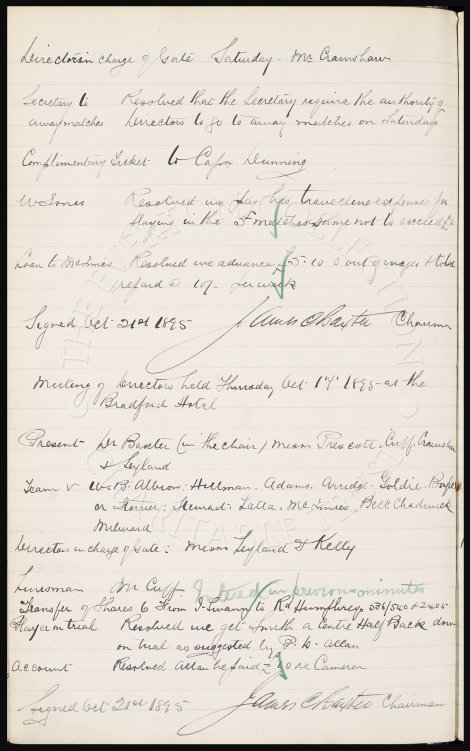 Director in charge of Gate Saturday - Mr Cramshaw
Secretary to Resolved that the Secretary require the authority of
away matches Directors to go to away matches on Saturdays
Complimentary Ticket to Capn Dunning
W Jones Resolved we pay his travelling expenses for
playing in the 5 matches same not to exceed
Loan to McInnes Resolved we advance £5.10.0 out of wages & to be
repaid @ 10/- per week
Signed Oct 21st 1895 James C Baxter Chairman
Meeting of Directors held Thursday Oct 17th 1895 at the
Bradford Hotel
Present Dr Baxter (in the chair) Messrs Prescott, Cuff, Cramshaw
& Leyland
Team v W.B. Albion: Hillman. Adams. Arridge. Goldie. Boyle
or Storrier: Stewart: Latta, McInnes, Bell Chadwick
Milward
Directors in charge of Gate: Messrs Leyland & Kelly
Linesman Mr Cuff Entered in previous minutes
Transfer of Shares 6 From J. Swann to Rd Humphreys 536/540 & 2405
Player on trial Resolved we get Smith a Centre Half Back down
on trial as suggested by P. W. Allan
Account Resolved Allan be paid re Cameron
Signed Oct 21st 1895 James C Baxter Chairman
THE EVERTON
COLLECTION
CHARITABLE TRUST